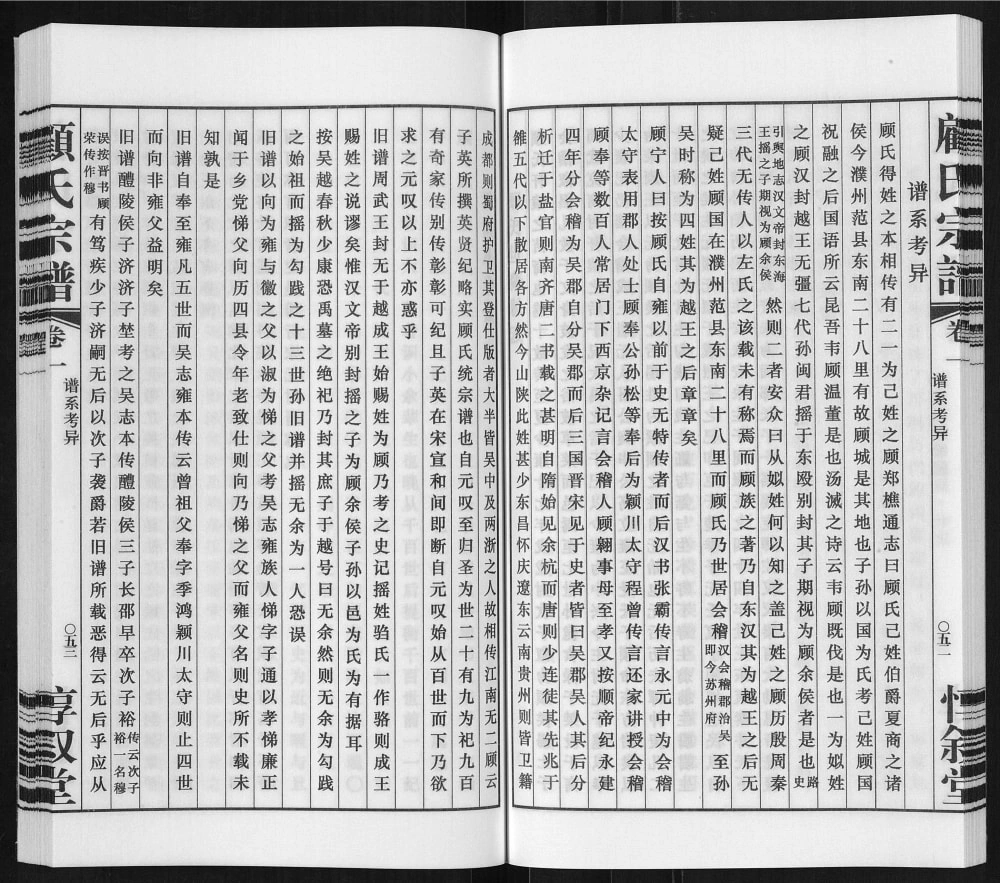 顾氏宗谱
卷一
谱系考异
〇五一
惇叙堂
谱系考异
顾氏得姓之本相传有二一为己姓之顾郑樵通志曰顾氏己姓伯爵夏商之诸
侯今濮州范县东南二十八里有故顾城是其地也子孙以国为氏考己姓顾国
祝融之后国语所云昆吾韦顾温董是也汤灭之诗云韦顾既伐是也一为姒姓
之顾汉封越王无彊七代孙闽君摇于东殴别封其子期视为顾余侯者是也路史
引舆地志汉文帝封东海王摇之子期视为顾余侯然则二者安众曰从姒姓何以知之盖己姓之顾历殷周秦
三代无传人以左氏之该载未有称焉而顾族之著乃自东汉其为越王之后无
疑己姓顾国在濮州范县东南二十八里而顾氏乃世居会稽汉会稽郡治吴即今苏州府至孙
吴时称为四姓其为越王之后章章矣
顾宁人曰按顾氏自雍以前于史无特传者而后汉书张霸传言永元中为会稽
太守表用郡人处士顾奉公孙松等奉后为颍川太守程曾传言还家讲授会稽
顾奉等数百人常居门下西京杂记言会稽人顾翱事母至孝又按顺帝纪永建
四年分会稽为吴郡自分吴郡而后三国晋宋见于史者皆曰吴郡吴人其后分
析迁于盐官则南齐唐二书载之甚明自隋始见余杭而唐则少连徒其先兆于
雒五代以下散居各方然今山陕此姓甚少东昌怀庆遼东云南贵州则皆卫籍
成都则蜀府护卫其登仕版者大半皆吴中及两浙之人故相传江南无二顾云
子英所撰英贤纪略实顾氏统宗谱也自元叹至归圣为世二十有九为祀九百
有奇家传别传彰彰可纪且子英在宋宣和间即断自元叹始从百世而下乃欲
求之元叹以上不亦惑乎
旧谱周武王封无于越成王始赐姓为顾乃考之史记摇姓驺氏一作骆则成王
赐姓之说谬矣惟汉文帝别封摇之子为顾余侯子孙以邑为氏为有据耳
按吴越春秋少康恐禹墓之绝祀乃封其庶子于越号曰无余然则无余为勾践
之始祖而摇为勾践之十三世孙旧谱并摇无余为一人恐误
旧谱以向为雍与徽之父以淑为悌之父考吴志雍族人悌字子通以孝悌廉正
闻于乡党悌父向历四县令年老致仕则向乃悌之父而雍父名则史所不载未
知孰是
旧谱自奉至雍凡五世而吴志雍本传云曾祖父奉字季鸿颍川太守则止四世
而向非雍父益明矣
旧谱醴陵侯子济济子埜考之吴志本传醴陵侯三子长邵早卒次子裕传云次子裕一名穆
误按晋书顾荣传作穆有笃疾少子济嗣无后以次子袭爵若旧谱所载恶得云无后乎应从
顾氏宗谱
卷一
谱系考异
〇五二
惇叙堂